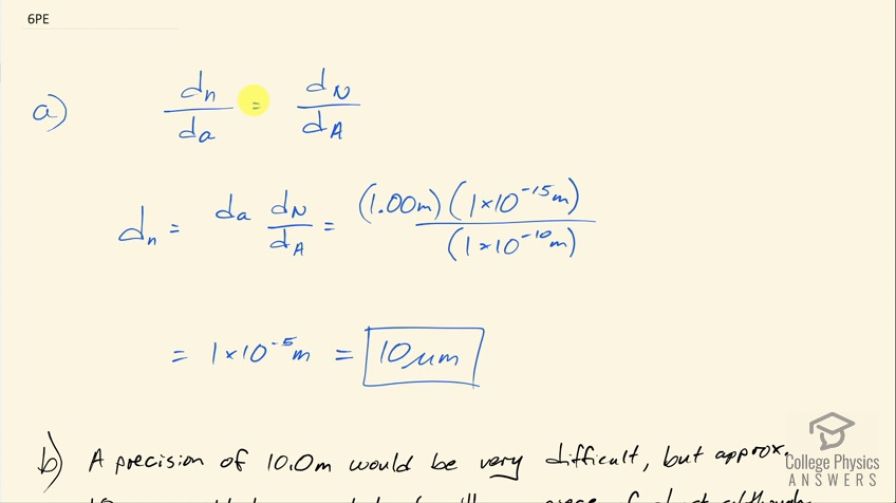 6PE
a) dₙ/dₐ = d_N/d_A
dₙ = dₐ d_N/d_A = (1.00m)(1×10⁻¹⁵m)/(1×10⁻¹⁰m)
= 1×10⁻⁵m = 10μm
b) A precision of 10.0m would be very difficult, but approx.
College Physics
ANSWERS